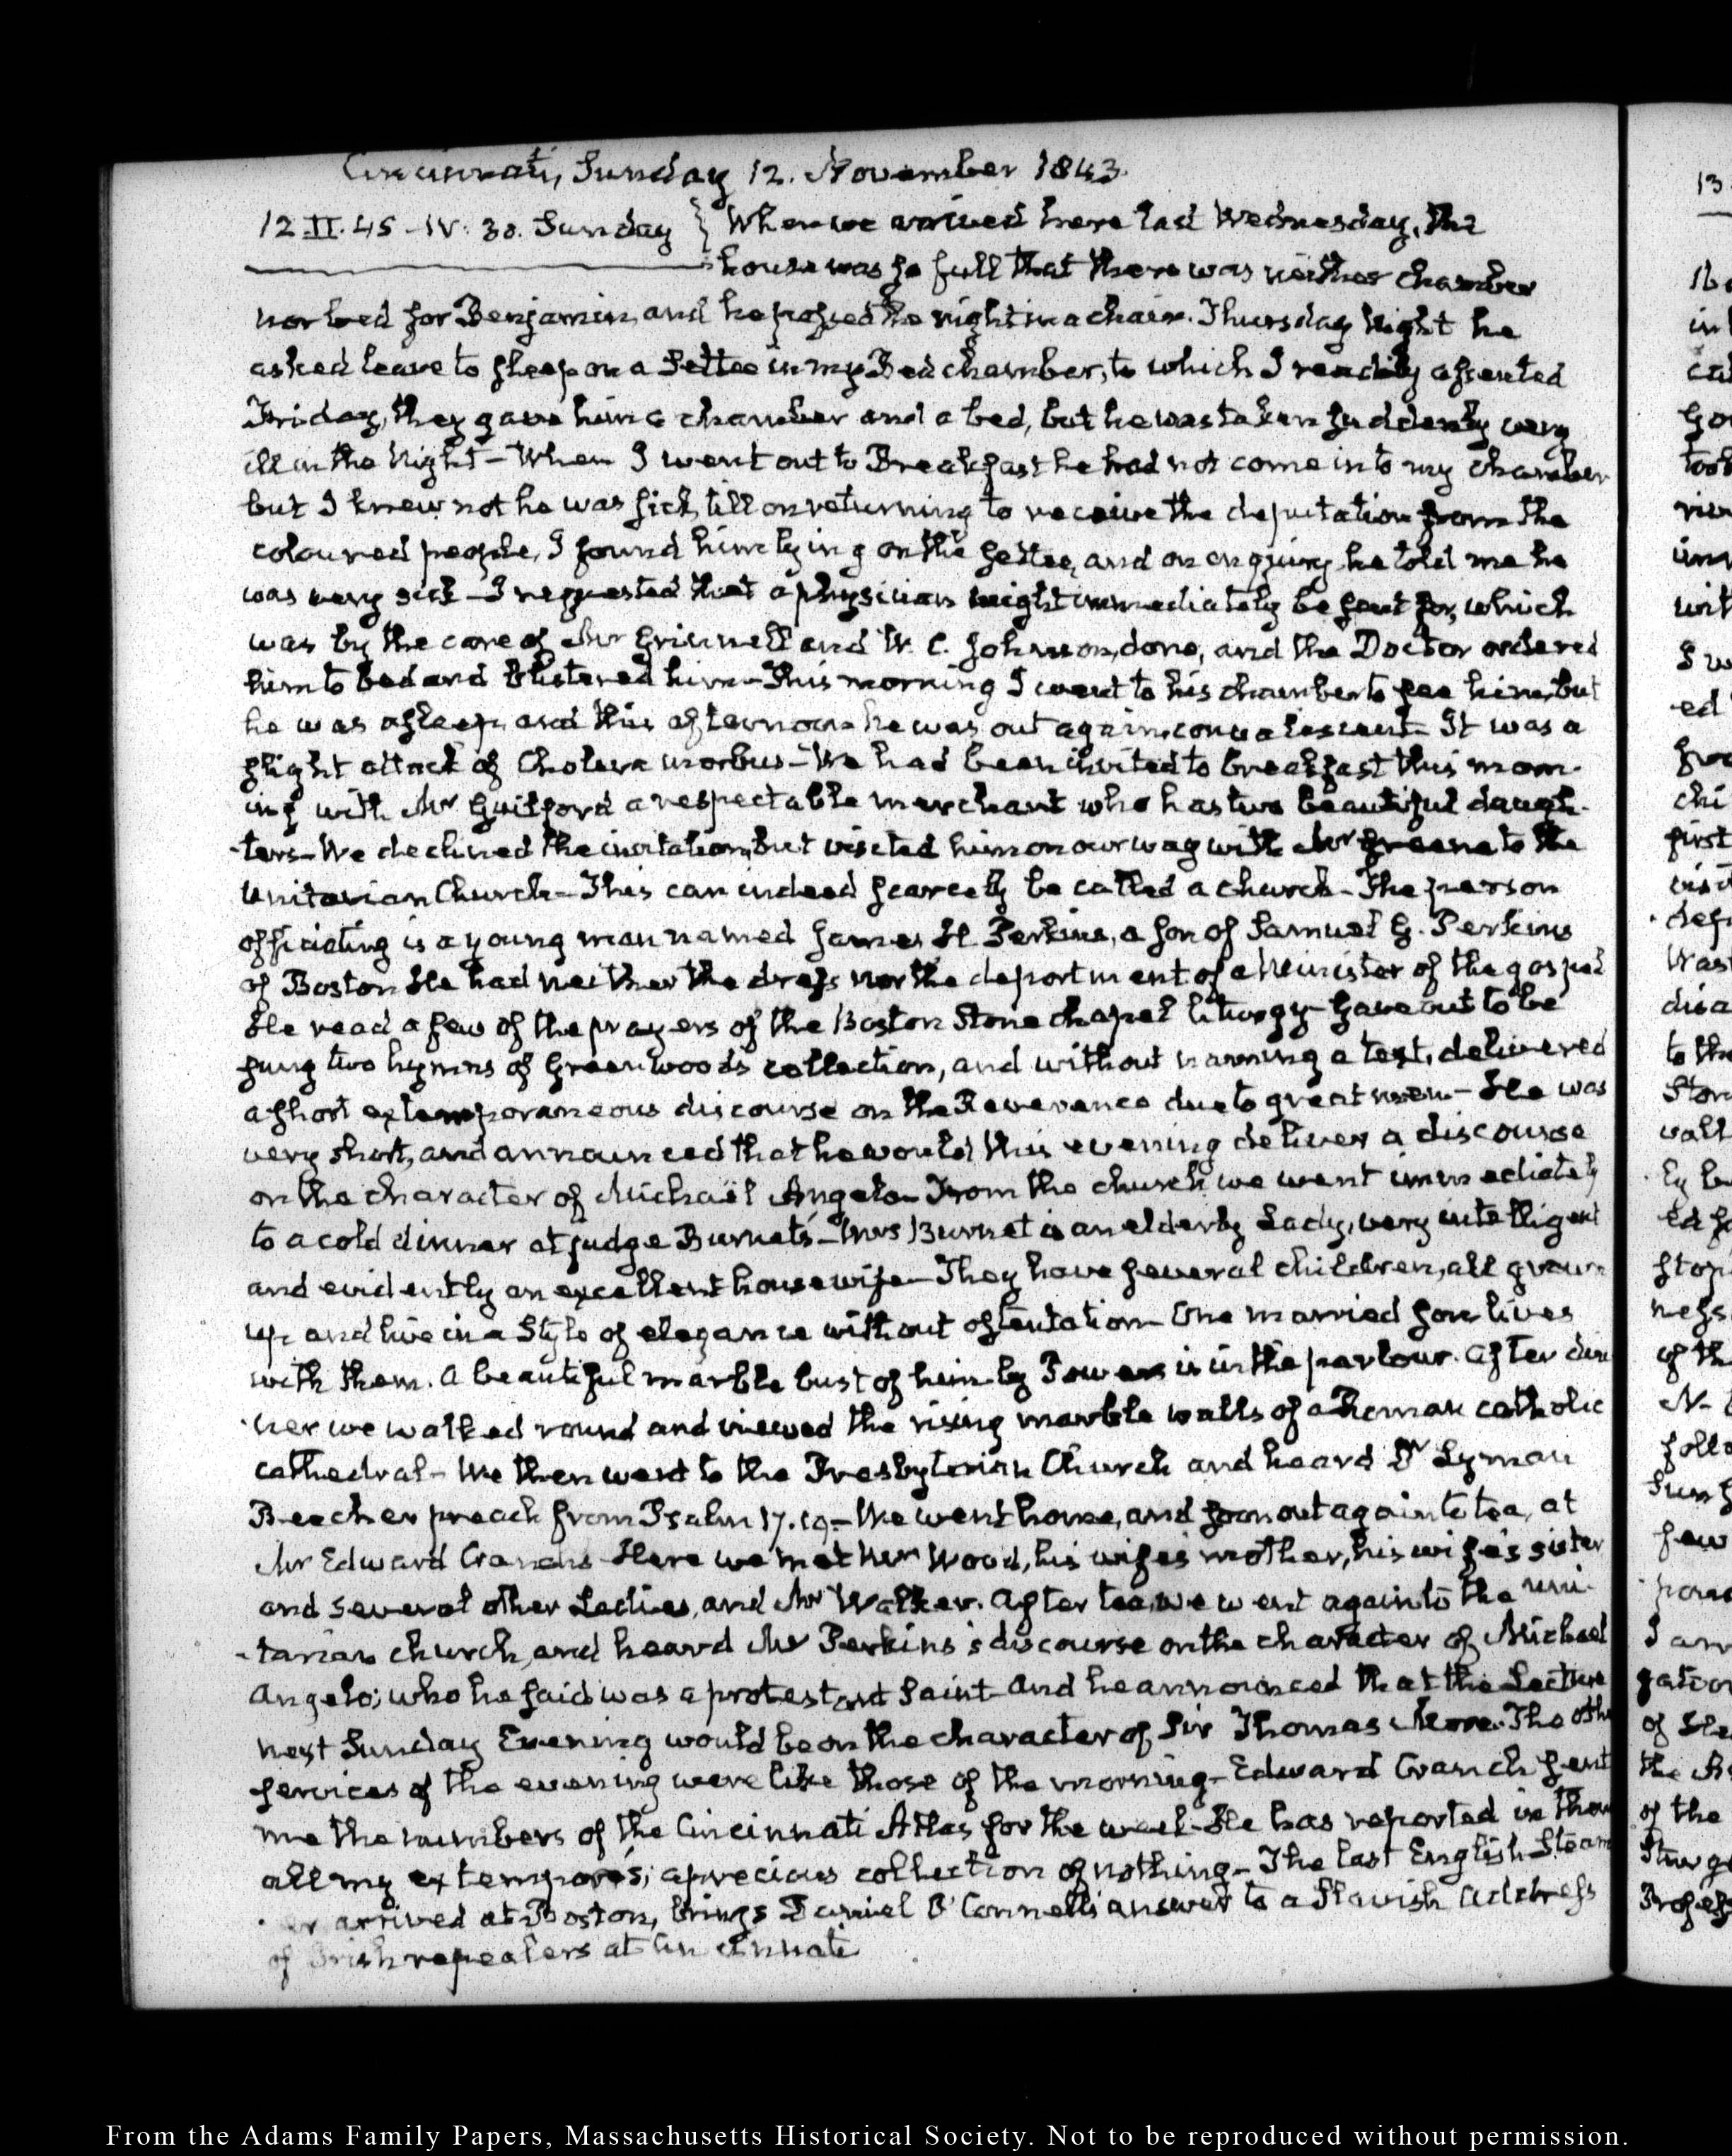 Cincinnati, Sunday 12. November 1843.
12 II. 45 - IV: 30. Sunday } When we arrived here last Wednesday, the
house was so full that there was neither chamber
nor bed for Benjamin, and he passed the night in a chair. Thursday Night he
asked leave to sleep on a Settee in my Bed chamber, to which I readily assented
Friday, they gave him a chamber and a bed, but he was taken suddenly very
ill in the Night - When I went out to Breakfast he had not come into my chamber
but I knew not he was sick, till on returning to receive the deputation from the
coloured people, I found him lying on the settee, and on enquiry he told me he
was very sick - I requested that a physician might immediately be sent for, which
was by the care of Mr Grinnell and W. C. Johnson, done, and the Doctor ordered
him to bed and blistered him - This morning I went to his chamber to see him, but
he was asleep, and this afternoon he was out again, convalescent - It was a
slight attack of Cholera morbus - We had been invited to breakfast this morn-
ing with Mr Guilford a respectable merchant who has two beautiful daugh-
-ters - We declined the invitation, but visited him on our way with Mr Greene to the
Unitarian Church - This can indeed scarcely be called a church - The person
officiating is a young man named James H Perkins, a son of Samuel G. Perkins
of Boston He had neither the dress nor the deportment of a Minister of the gospel
He read a few of the prayers of the Boston Stone chapel liturgy - Gave out to be
sung two hymns of Greenwood's collection, and without naming a text, delivered
a short extemporaneous discourse on the Reverence due to great men - He was
very short, and announced that he would this evening deliver a discourse
on the character of Michaël Angelo - From the church we went immediately
to a cold dinner at judge Burnet's - Mrs Burnet is an elderly Lady, very intelligent
and evidently an excellent housewife - They have several children, all grown
up and live in a Style of elegance without ostentation - One married son lives
with them. A beautiful marble bust of him by Powers is in the parlour. After din
-ner we walked round and viewed the rising marble walls of a Roman catholic
cathedral - We then went to the Presbyterian Church and heard Dr Lyman
Beecher preach from Psalm 17.19. - We went home, and soon out again to tea, at
Mr Edward Cranch's Here we met Mrs Wood, his wife's mother, his wife's sister
and several other Ladies, and Mr Walker. After tea, we went again to the uni-
-tarian church, and heard Mr Perkins's discourse on the character of Michael
Angelo; who he said was a protestant Saint - And he announced that the Lecture
next Sunday Evening would be on the character of Sir Thomas More. The oth
services of the evening were like those of the morning - Edward Cranch sent
me the numbers of the Cincinnati Atlas for the week - He has reported in them
all my extempore's; a precious collection of nothing - The last English Steam
er arrived at Boston, brings Daniel O'Connell's answer to a Slavish Address
of Irish repealers at Cincinnati
13
From the Adams Family Papers, Massachusetts Historical Society. Not to be reproduced without permission.